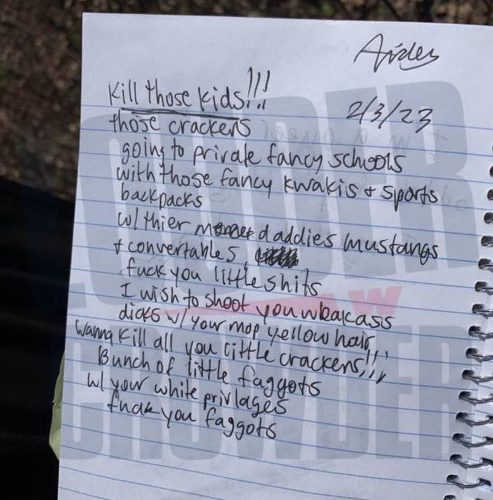 Aiden
Kill those kids!!!
2/3/23
those crackers
going to private fancy schools
with those fancy kwakis + sports
backpacks
w/ thier daddies mustangs
+ convertables
fuck you little shits
I wish to shoot you weakass
dicks w/ your mop yellow hair
Wanna kill all you little crackers!!!
Bunch of little faggots
w/ your white privlages
fuck you faggots
LOUDER
W
CROWDER